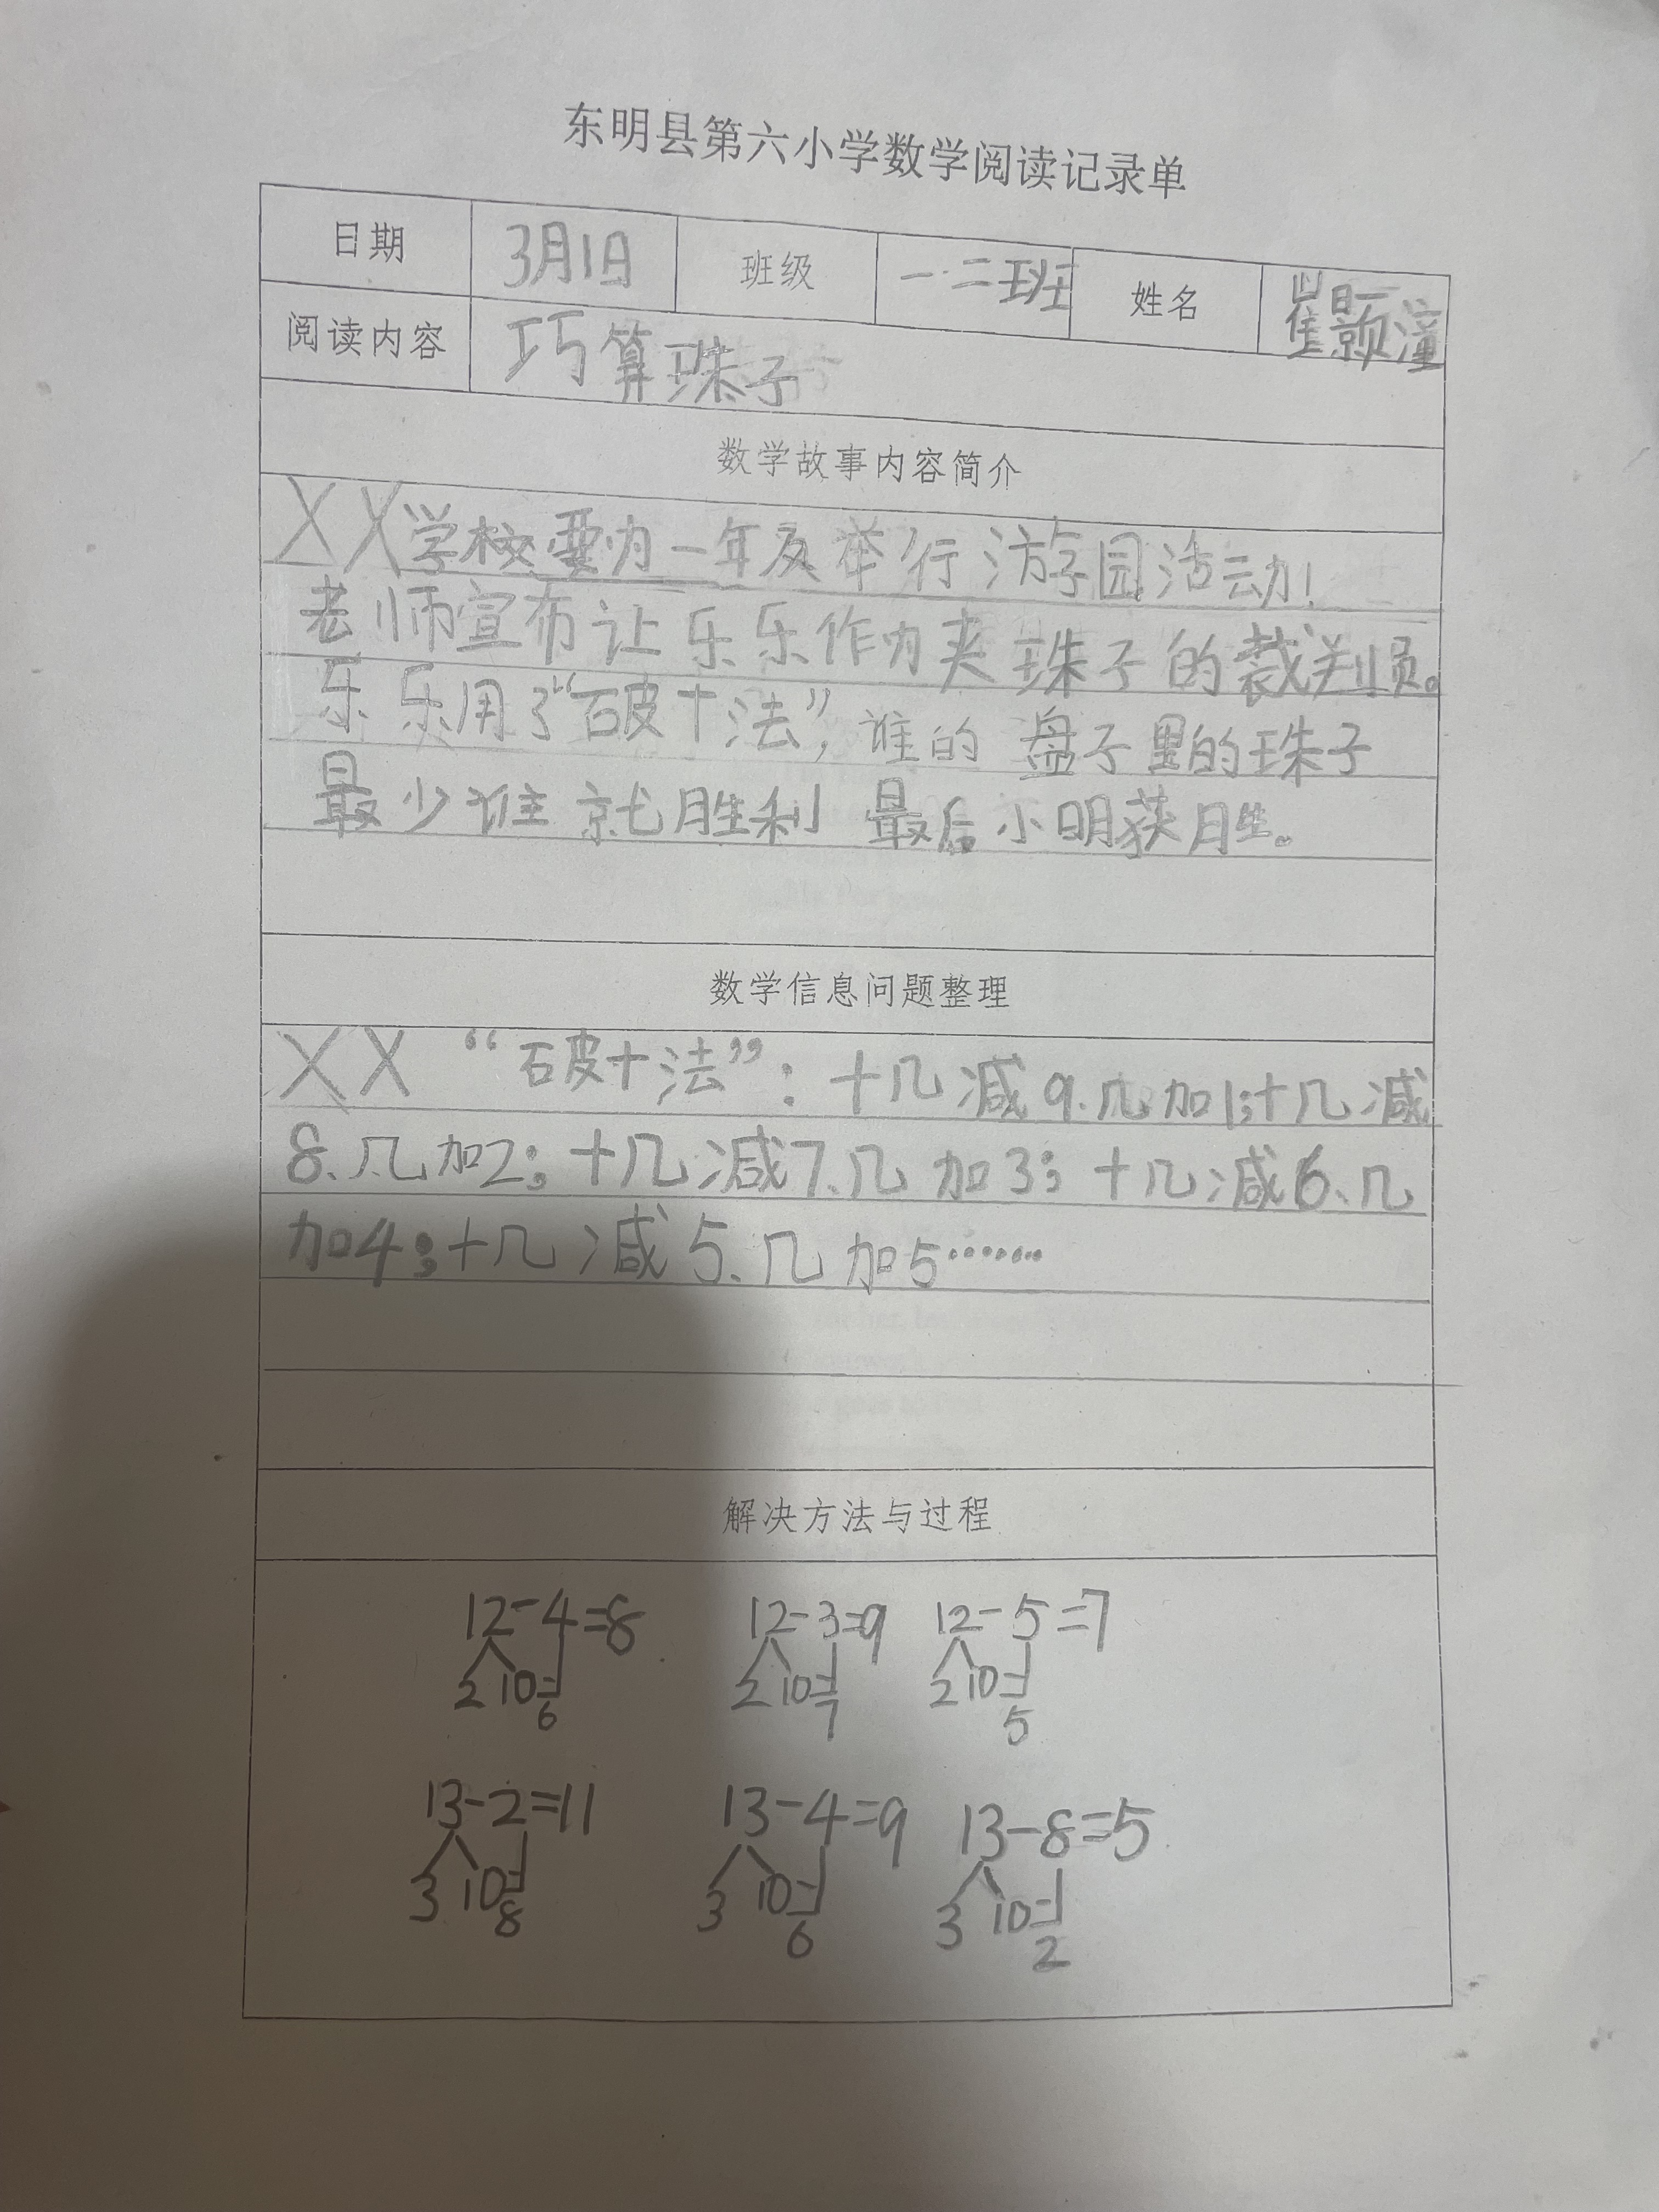 东明县第六小学数学阅读记录单
日期 3月1日 班级 一·二班 姓名 崔颢潼
阅读内容 巧算珠子
数学故事内容简介
XX学校要为一年及举行游园活动!
老师宣布让乐乐作为夹珠子的裁判员。
乐乐用了“破十法”,谁的盘子里的珠子
最少谁就胜利 最后小明获胜。
数学信息问题整理
XX “破十法”:十几减9、几加1;十几减
8、几加2;十几减7、几加3;十几减6、几
加4;十几减5、几加5……
解决方法与过程
12-4=8 12-3=9 12-5=7
2 10 2 10 2 10
6 7 5
13-2=11 13-4=9 13-8=5
3 10 3 10 3 10
8 6 2